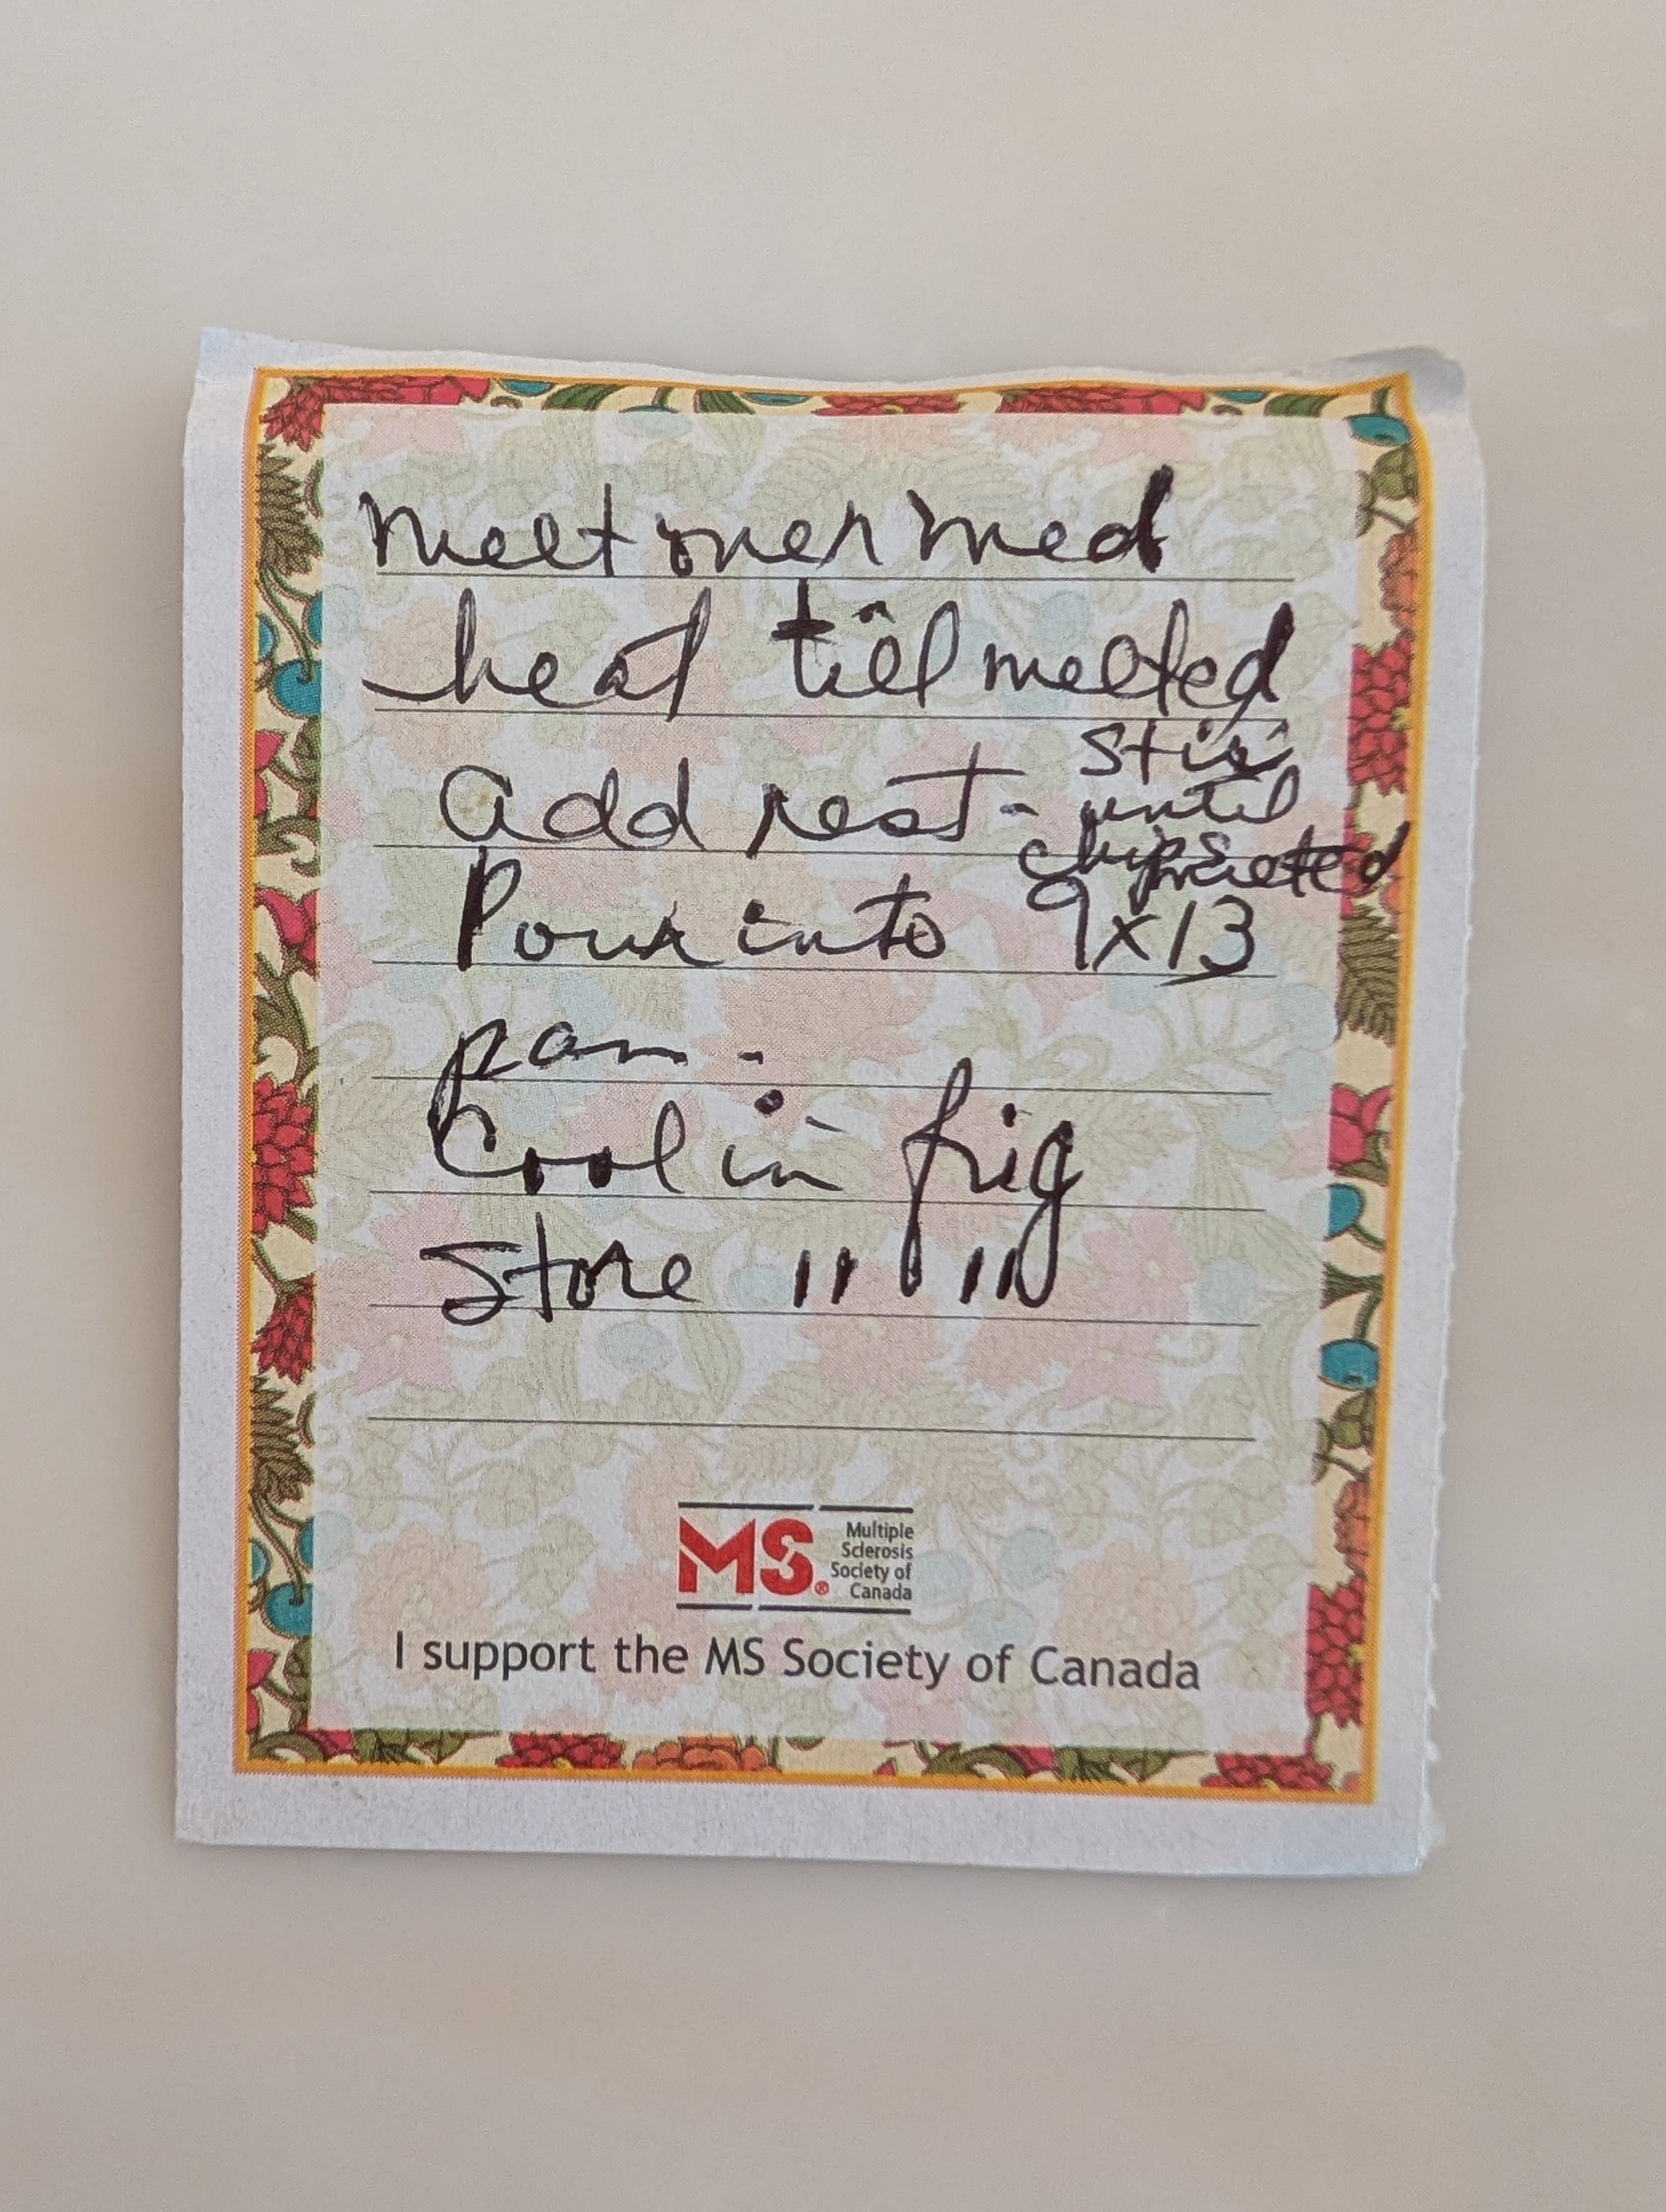 Melt over med
heat till melted
add rest - stir
until
chips melted
Pour into 9x13
pan.
Cool in frig
Store " "
MS.® Multiple
Sclerosis
Society of
Canada
I support the MS Society of Canada